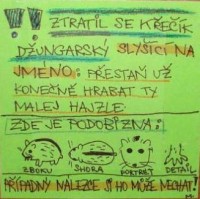 !! ZTRATIL SE KŘEČÍK
DŽUNGARSKÝ SLYŠÍCÍ NA
JMÉNO: PŘESTAŇ UŽ
KONEČNĚ HRABAT TY
MALEJ HAJZLE.
ZDE JE PODOBIZNA:
ZBOKU SHORA PORTRÉT DETAIL
PŘÍPADNÝ NÁLEZCE SI HO MŮŽE NECHAT!